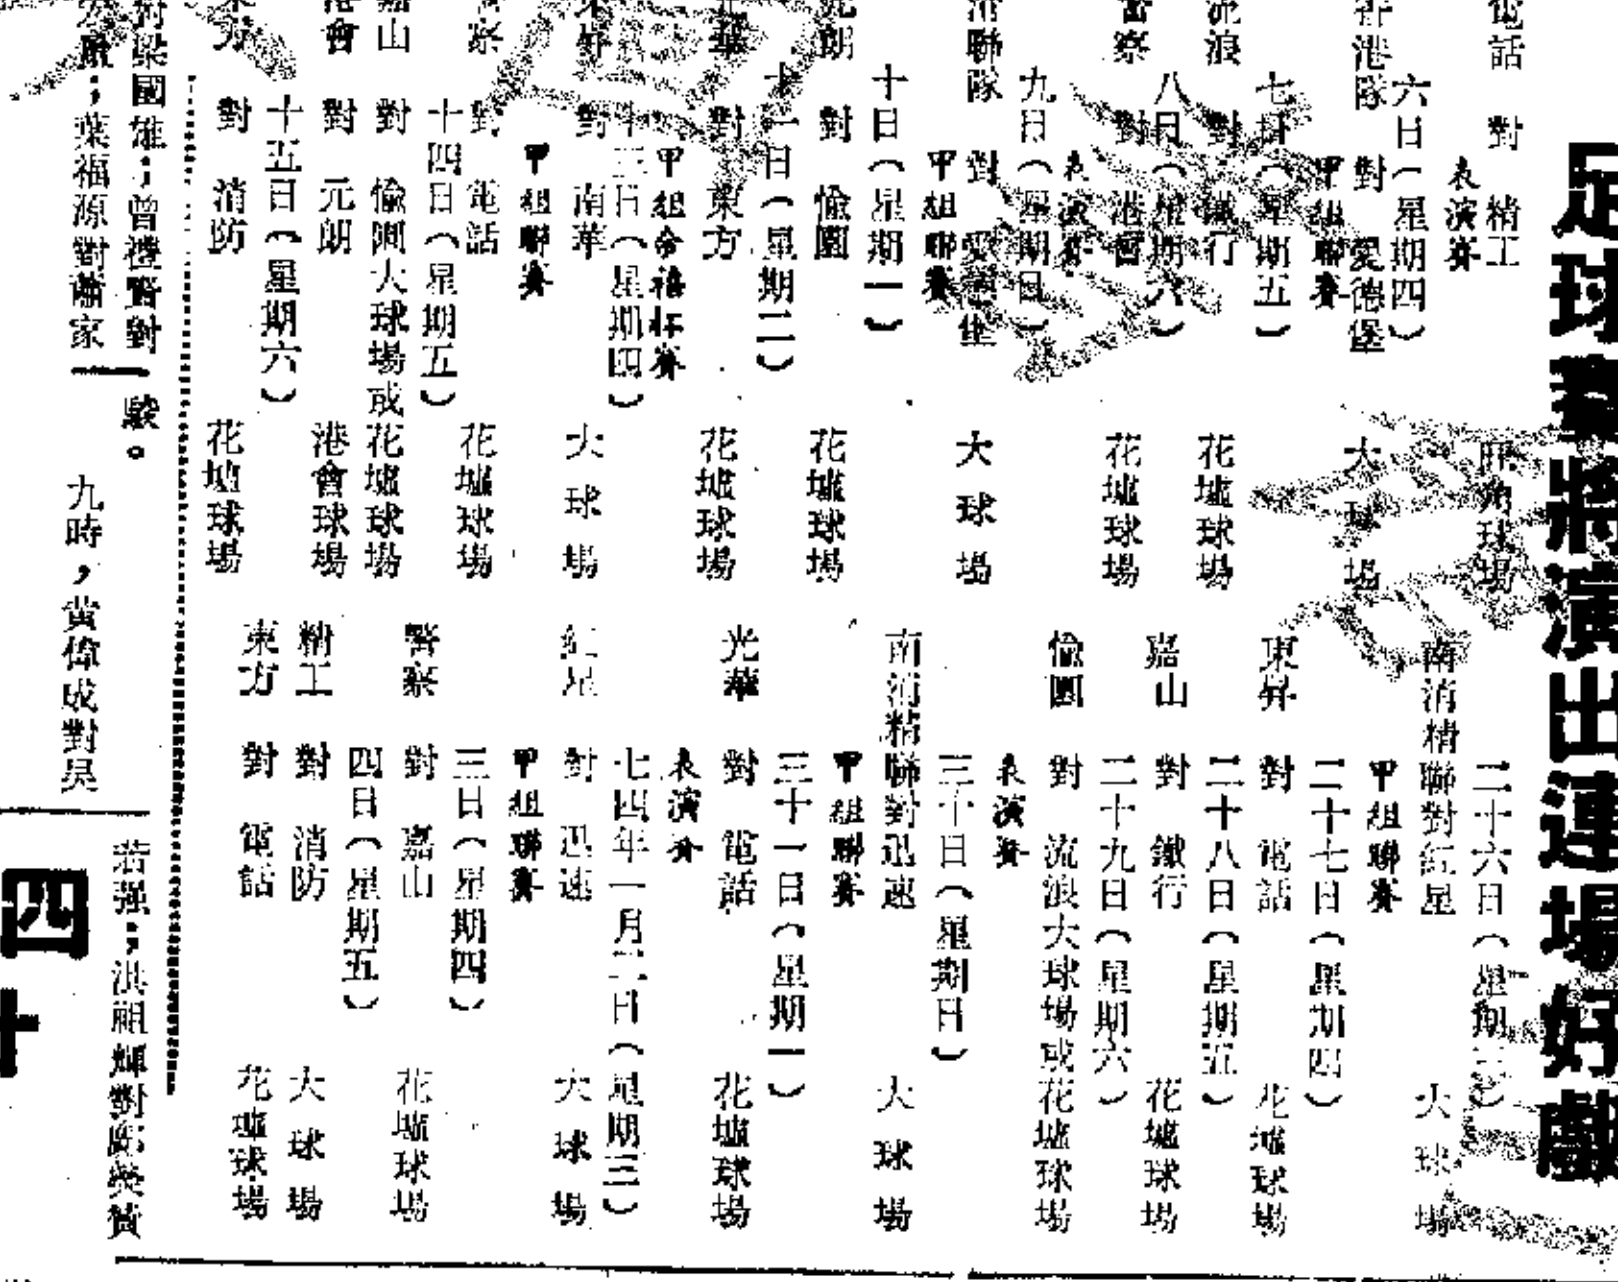 足球賽將演出連場好戲
電話　對　精工　旺角球場
表演賽
六日（星期四）
香港隊　對　愛德堡　大球場
甲組聯賽
七日（星期五）
流浪　對　鐵行　花墟球場
八日（星期六）
警察　對　港會　花墟球場
表演賽
九日（星期日）
聯隊　對　愛德堡　大球場
甲組聯賽
十日（星期一）
元朗　對　愉園　花墟球場
十一日（星期二）
光華　對　東方　花墟球場
甲組金禧杯賽
十三日（星期四）
東昇　對　南華　大球場
甲組聯賽
十四日（星期五）
警察　對　電話　花墟球場
嘉山　對　愉園大球場或花墟球場
港會　對　元朗　港會球場
十五日（星期六）
東方　對　消防　花墟球場
二十六日（星期三）
南消精聯對紅星　大球場
甲組聯賽
二十七日（星期四）
東昇　對　電話　花墟球場
二十八日（星期五）
嘉山　對　鐵行　花墟球場
二十九日（星期六）
愉園　對　流浪大球場或花墟球場
表演賽
三十日（星期日）
南消精聯對迅速　大球場
甲組聯賽
三十一日（星期一）
光華　對　電話　花墟球場
表演賽
七四年一月二日（星期三）
紅星　對　迅速　大球場
甲組聯賽
三日（星期四）
警察　對　嘉山　花墟球場
四日（星期五）
精工　對　消防　大球場
東方　對　電話　花墟球場
對梁國雄；曾禮賢對
；葉福源對蕭家
駿。
九時，黄偉成對吳
若强；洪祖輝對鄭榮贊
四十